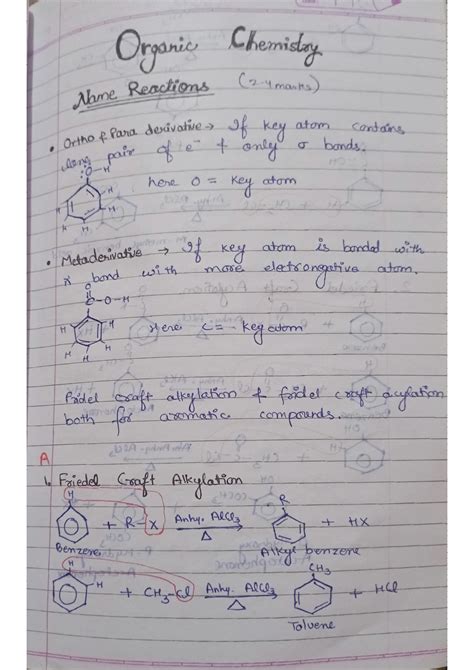 Organic Chemistry
Name Reactions (2-4 marks)
• Ortho & Para derivative → If key atom contains
long pair of e⁻ + only σ bonds.
:O-H
here O = key atom
H H H H H
• Metaderivative → If key atom is bonded with
π bond with more eletrongative atom.
O
C-O-H
Here C = key atom
H H H H H
Fridel craft alkylation & fridel craft acylation
both for aromatic compounds.
A
1. Friedel Craft Alkylation
H R
+ R-X Anhy. AlCl3 Δ + HX
Benzene Alkyl benzene
H H CH3
+ CH3-Cl Anhy. AlCl3 Δ + HCl
Toluene